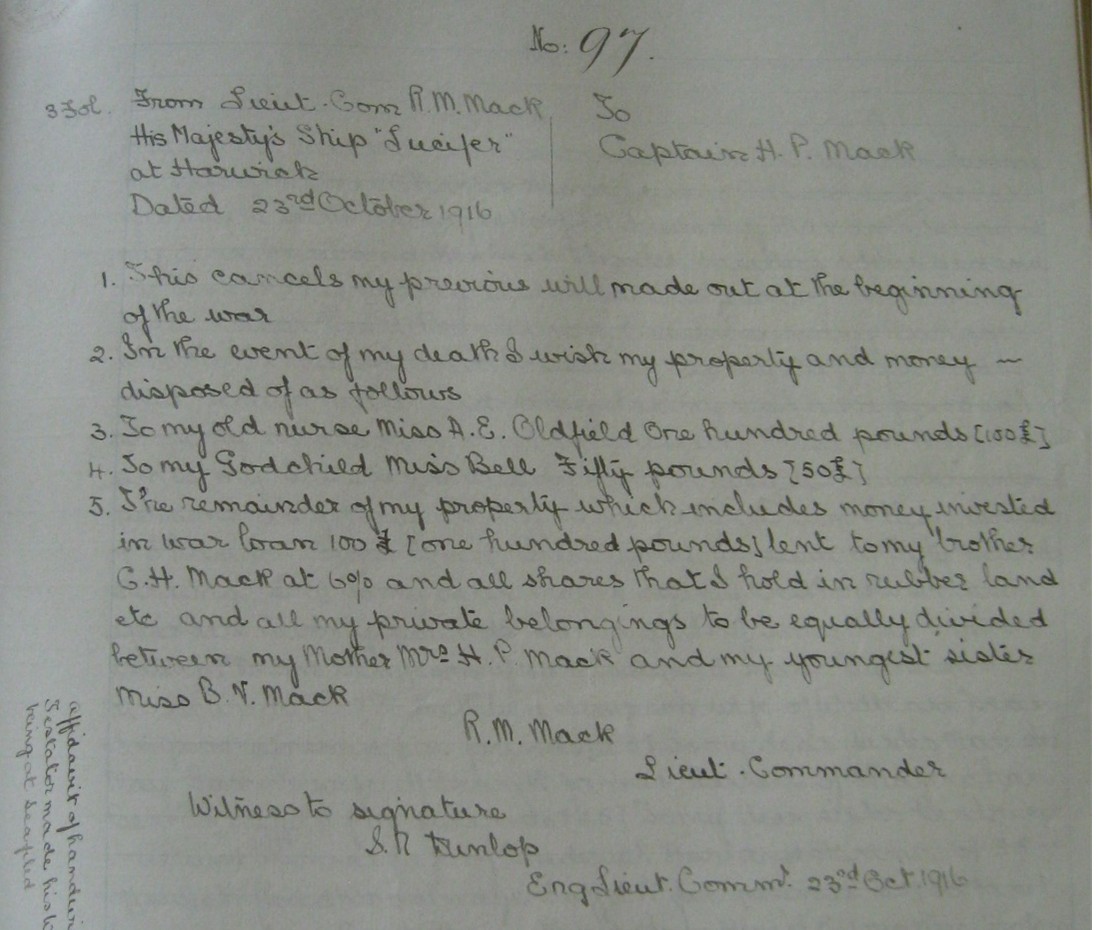 No: 97.
3 Fol. From Lieut. Com R.M. Mack
His Majesty's Ship "Lucifer"
at Harwich
Dated 23rd October 1916
To
Captain H. P. Mack
1. This cancels my previous will made out at the beginning
of the war
2. In the event of my death I wish my property and money —
disposed of as follows
3. To my old nurse Miss A.E. Oldfield One hundred pounds [100£]
4. To my Godchild Miss Bell Fifty pounds [50£]
5. The remainder of my property which includes money invested
in war loan 100£ [one hundred pounds] lent to my brother
G.H. Mack at 6% and all shares that I hold in rubber land
etc and all my private belongings to be equally divided
between my Mother Mrs H. P. Mack and my youngest sister
Miss B. V. Mack
R.M. Mack
Lieut. Commander
Witness to signature
S.R Dunlop
Eng Lieut. Commr. 23rd Oct. 1916
affidavit of
Testator made his
being at sea